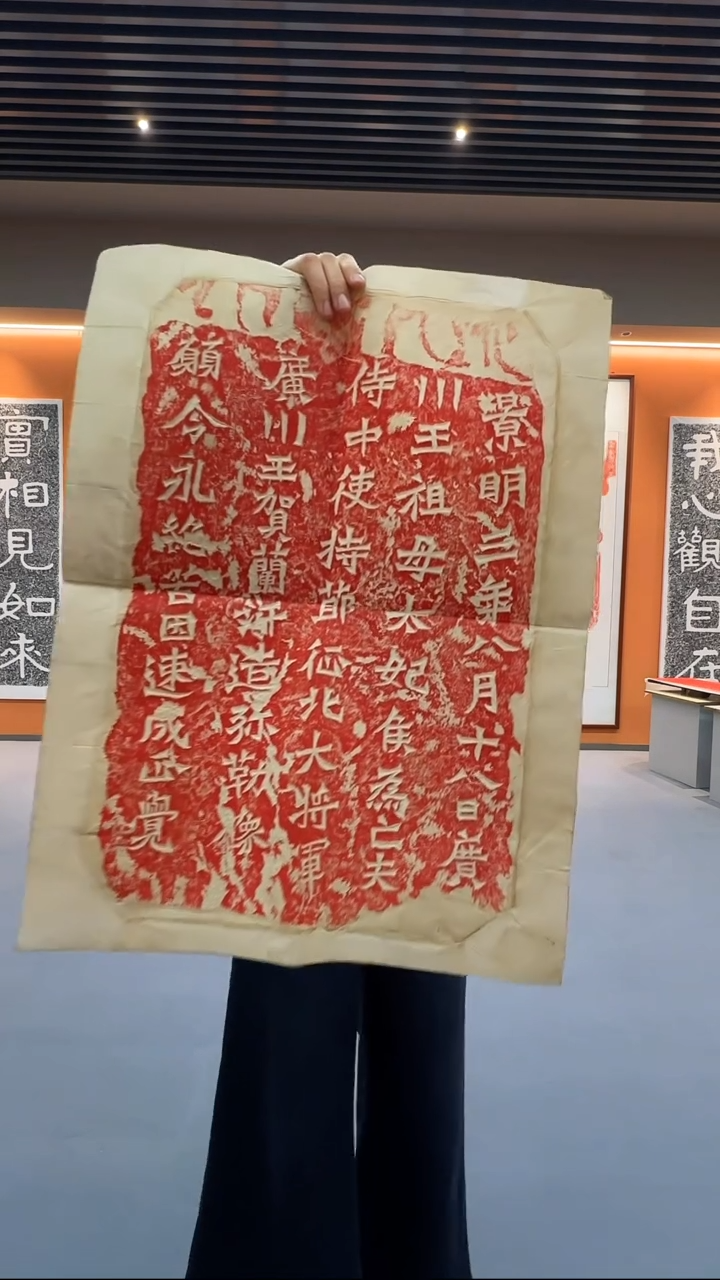 景明三年八月十八日廣
川王祖母太妃侯為亡夫
侍中使持節征北大將軍
廣川王賀蘭汗造弥勒像
願令永絕苦因速成正覺
我心觀自在
實相見如來